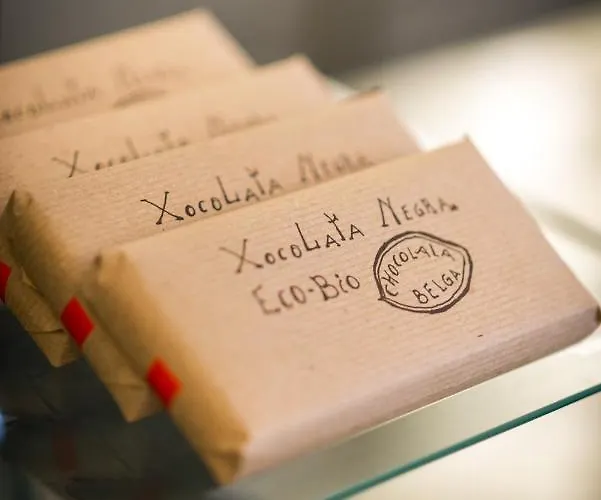 Xocolata
Xocolata Negra
Xocolata Negra
Xocolata Negra
Eco-Bio
CHOCOLALA
BELGA